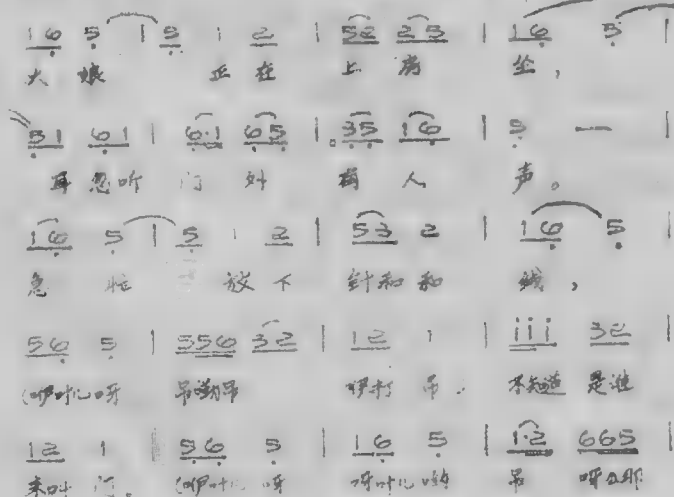 16 5 | 5 1 2 | 52 25 | 16 5 |
大娘 正在 上房 坐,
51 61 | 6·1 65 | 35 16 | 5 — |
耳忽听 门外 有人 声。
16 5 | 5 1 2 | 53 2 | 16 5 |
急忙 放下 针和和 线,
56 5 | 556 32 | 12 1 | iii 32 |
(咿叶儿呀 吊 吊 咿打 吊. 不知道 是谁
12 1 | 56 5 | 16 5 | 1·2 665 |
来叫 门. (咿叶儿 呀 呀叶儿哟 吊 呀